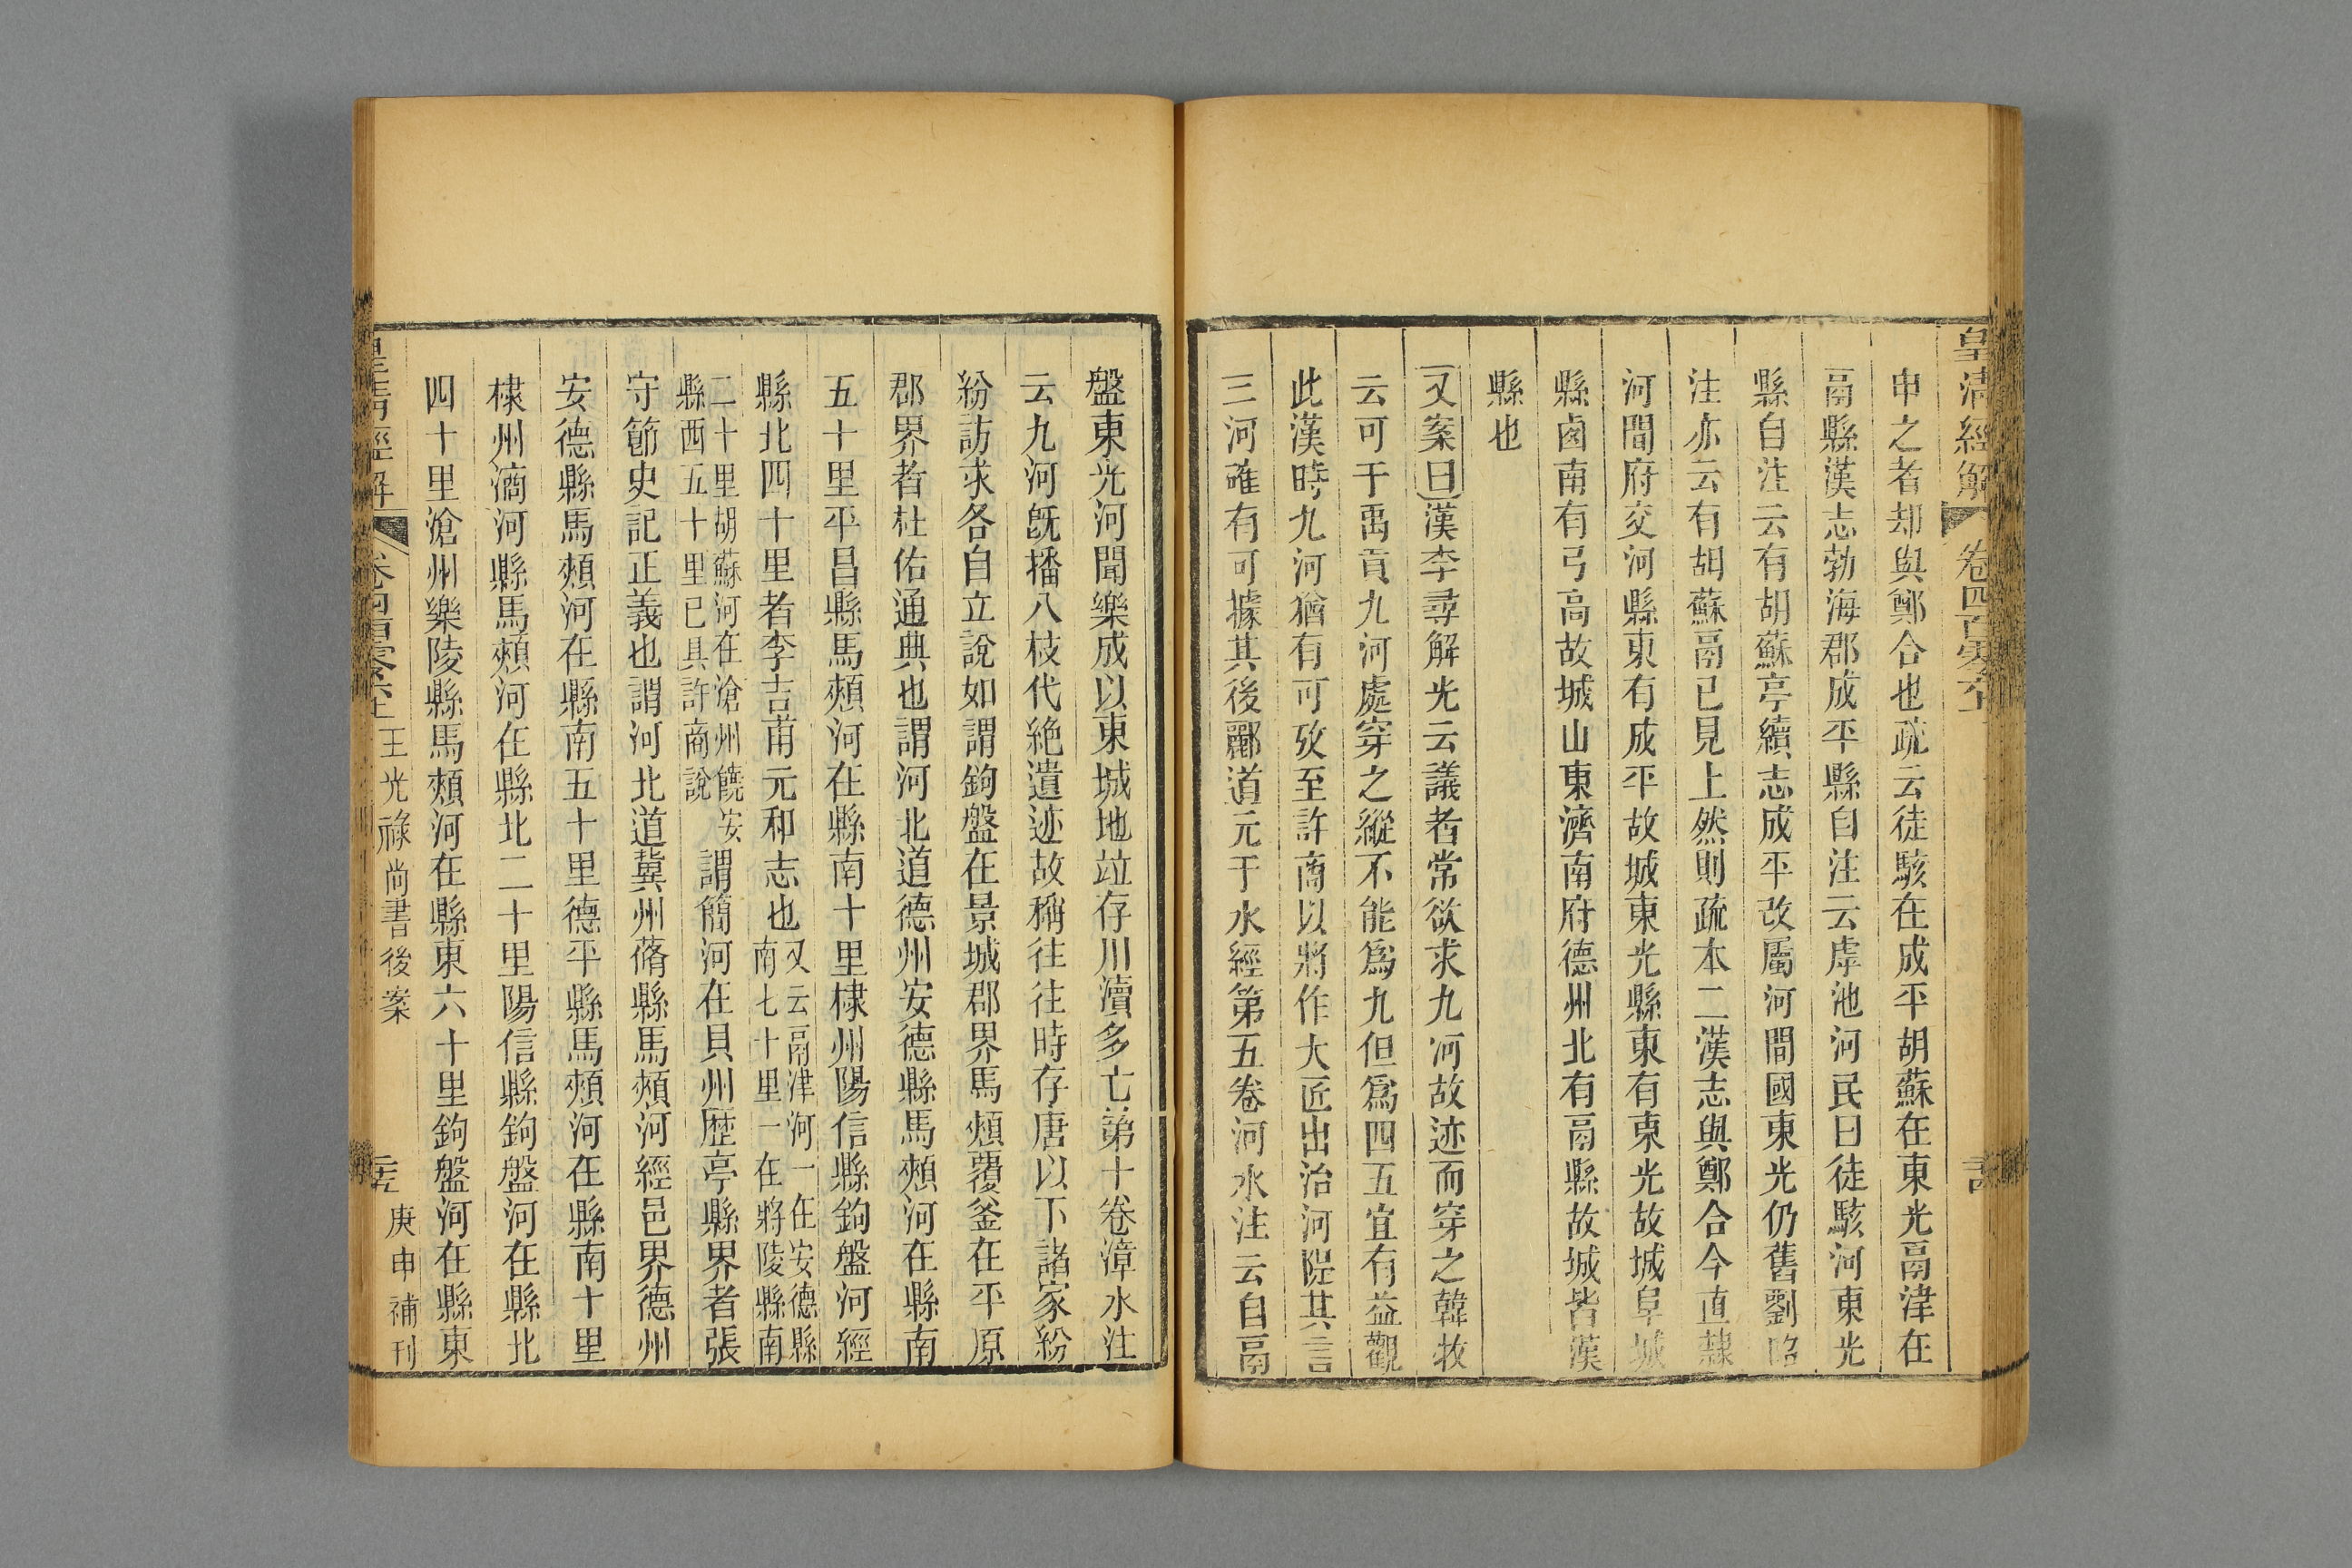 皇清經解 卷四百零六
申之者却與鄭合也疏云徒駭在成平胡蘇在東光鬲津在
鬲縣漢志勃海郡成平縣自注云虖池河民曰徒駭河東光
縣自注云有胡蘇亭續志成平改屬河間國東光仍舊劉昭
注亦云有胡蘇鬲已見上然則疏本二漢志與鄭合今直隸
河間府交河縣東有成平故城東光縣東有東光故城阜城
縣鹵南有弓高故城山東濟南府德州北有鬲縣故城皆漢
縣也
又案曰漢李尋解光云議者常欲求九河故迹而穿之韓牧
云可于禹貢九河處穿之縱不能爲九但爲四五宜有益觀
此漢時九河猶有可攷至許商以將作大匠出治河隄其言
三河確有可據其後酈道元于水經第五卷河水注云自鬲
盤東光河間樂成以東城地竝存川瀆多亡弟十卷漳水注
云九河旣播八枝代絶遺迹故稱往往時存唐以下諸家紛
紛訪求各自立說如謂鉤盤在景城郡界馬頰覆釜在平原
郡界者杜佑通典也謂河北道德州安德縣馬頰河在縣南
五十里平昌縣馬頰河在縣南十里棣州陽信縣鉤盤河經
縣北四十里者李吉甫元和志也又云鬲津河一在安德縣
南七十里一在將陵縣南
二十里胡蘇河在滄州饒安
縣西五十里已具許商說謂簡河在貝州歴亭縣界者張
守節史記正義也謂河北道冀州蓨縣馬頰河經邑界德州
安德縣馬頰河在縣南五十里德平縣馬頰河在縣南十里
棣州滴河縣馬頰河在縣北二十里陽信縣鉤盤河在縣北
四十里滄州樂陵縣馬頰河在縣東六十里鉤盤河在縣東
皇清經解 卷四百零六 王光祿尚書後案 庚申補刊